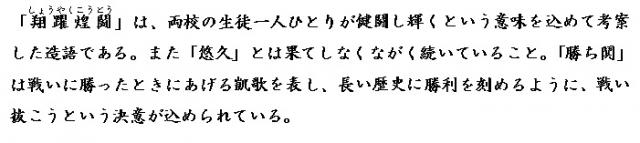 しょうやくこうとう
「翔躍煌闘」は、両校の生徒一人ひとりが健闘し輝くという意味を込めて考案
した造語である。また「悠久」とは果てしなくながく続いていること。「勝ち関」
は戦いに勝ったときにあげる凱歌を表し、長い歴史に勝利を刻めるように、戦い
抜こうという決意が込められている。